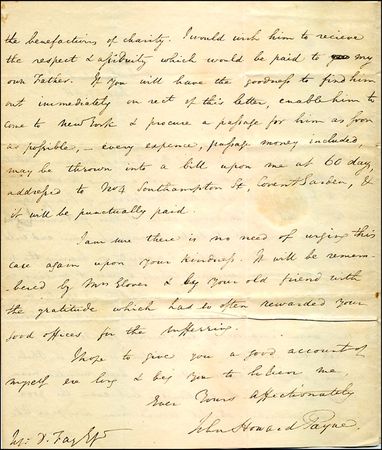 the benefactions of charity. I would wish him to recieve
the respect & assiduity which would be paid to my
own Father. If you will have the goodness to find him
out immediately on rect of this letter, enable him to
come to New York & procure a passage for him as soon
as possible, – every expence, passage money included,
may be thrown into a bill upon me at 60 days,
addressed to No 4 Southampton St, Covent Garden, &
it will be punctually paid.
I am sure there is no need of urging this
case again upon your kindness. It will be remem-
-bered by Mrs Glover & by your old friend with
the gratitude which has so often rewarded your
good offices for the suffering.
I hope to give you a good account of
myself ere long & beg you to believe me,
Ever Yours affectionately
John Howard Payne.
D. Fay Esqr